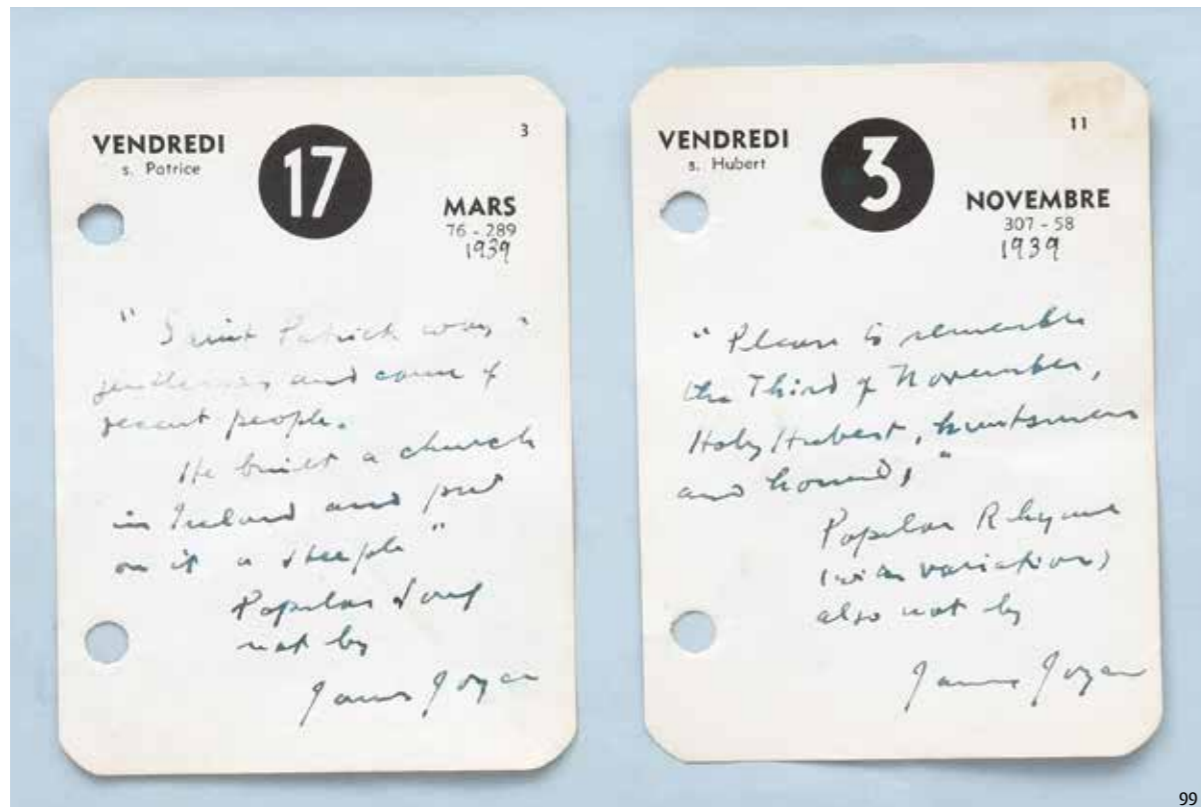 VENDREDI
s. Patrice
17
3
MARS
76 - 289
1939
" Saint Patrick was a
gentleman and came of
decent people.
He built a church
in Ireland and put
on it a steeple "
Popular Song
not by
James Joyce
VENDREDI
s. Hubert
3
11
NOVEMBRE
307 - 58
1939
" Please to remember
the Third of November,
Holy Hubert, huntsmen
and hound, "
Popular Rhyme
(with variation)
also not by
James Joyce
99